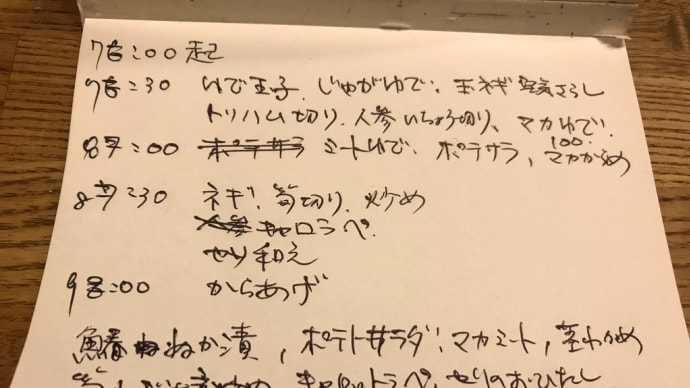 7時:00 起
7時:30 ゆで玉子、じゃがゆで、玉ネギ さらし
トリハム切り、人参いちょう切り、マカゆで
8時:00 ミートゆで、ポテサラ、マカからめ
100
8時:30 ネギ、筍切り、炒め
キャロラペ
セリ和え
9時:00 からあげ
ぬか漬、ポテトサラダ、マカミート、茎わかめ
キャロットラペ、セリのおひたし